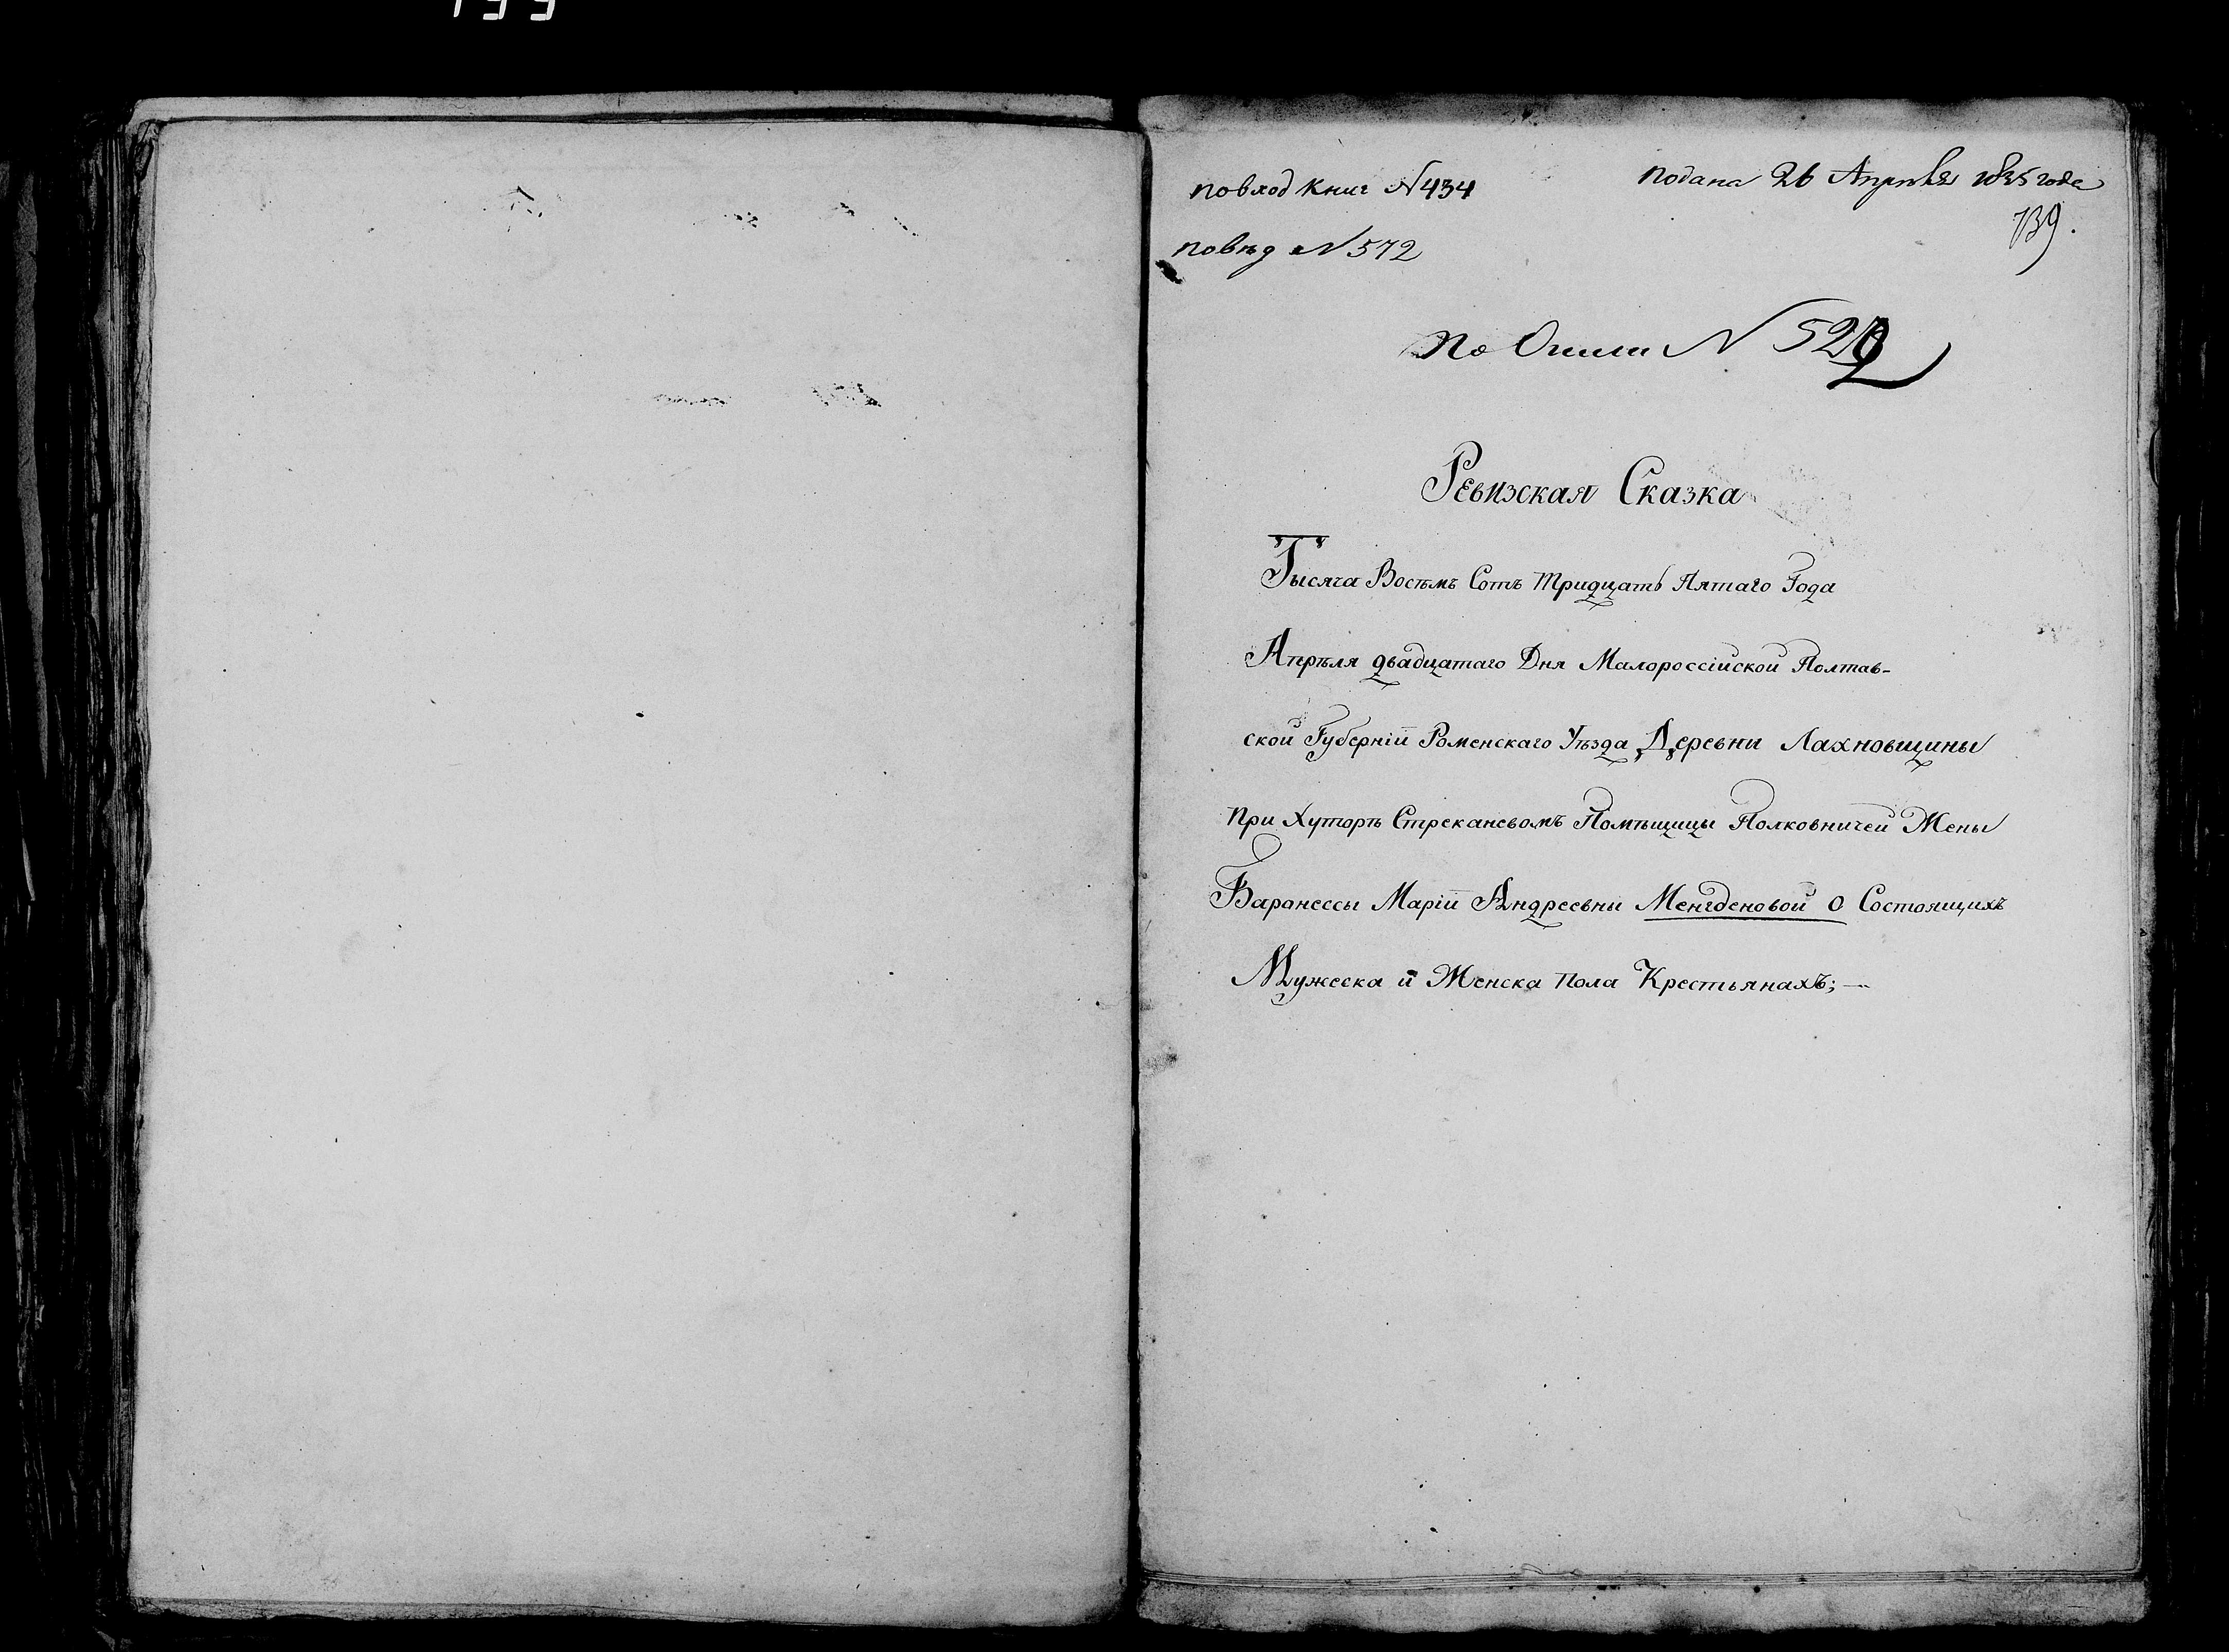 по вход книг N 434
подана 26 Апрѣля 1835 года
739.
по вѣд N 572
По Описи N 522
Ревизская Сказка
Тысяча Восемъ Сотъ тридцать Пятаго Года
Апрѣля двадцатаго Дня Малороссійской Полтав-
ской Губерніи Роменскаго Уѣзда Деревни Лахновщины
при Хуторѣ Стрекачевомъ Помѣщицы Полковничей Жены
Баронессы Маріи Андреевны Менгденовой о Состоящихъ
Мужеска и Женска пола Крестьянахъ; —